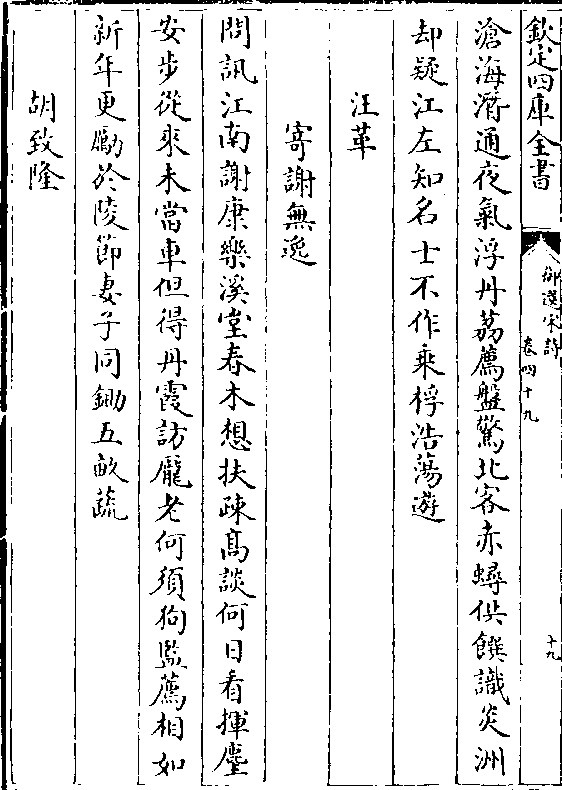 欽定四庫全書
御選宋詩
卷四十九
十九
滄海潛通夜氣浮丹荔薦盤驚北客赤蟳供饌識炎洲
却疑江左知名士不作乘桴浩蕩遊
汪革
寄謝無逸
問訊江南謝康樂溪堂春木想扶疎高談何日看揮麈
安步從來未當車但得丹霞訪龐老何須狗監薦相如
新年更勵於陵節妻子同鋤五畝蔬
胡致隆